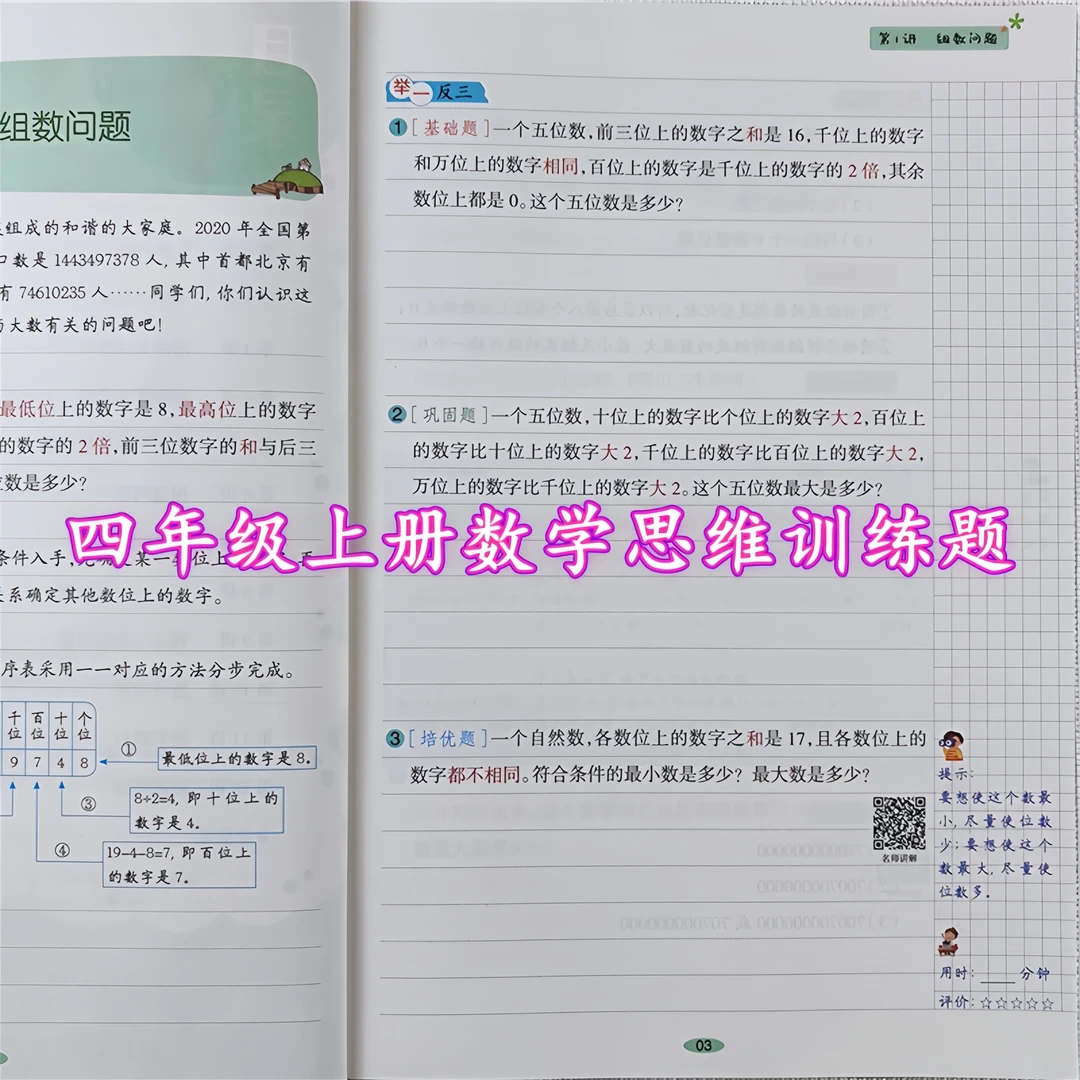 组数问题
组成的和谐的大家庭。2020年全国第
口数是1443497378人,其中首都北京有
有74610235人……同学们,你们认识这
与大数有关的问题吧!
最低位上的数字是8,最高位上的数字
的数字的2倍,前三位数字的和与后三
位数是多少?
条件入手,
某一
位上
系确定其他数位上的数字。
序表采用一一对应的方法分步完成。
千位 百位 十位 个位
9 7 4 8
① 最低位上的数字是8。
③ 8÷2=4,即十位上的
数字是4。
④ 19-4-8=7,即百位上
的数字是7。
第1讲 组数问题
举一反三
1[基础题]一个五位数,前三位上的数字之和是16,千位上的数字
和万位上的数字相同,百位上的数字是千位上的数字的2倍,其余
数位上都是0。这个五位数是多少?
2[巩固题]一个五位数,十位上的数字比个位上的数字大2,百位上
的数字比十位上的数字大2,千位上的数字比百位上的数字大2,
万位上的数字比千位上的数字大2。这个五位数最大是多少?
四年级上册数学思维训练题
3[培优题]一个自然数,各数位上的数字之和是17,且各数位上的
数字都不相同。符合条件的最小数是多少?最大数是多少?
名师讲解
提示:
要想使这个数最
小,尽量使位数
少;要想使这个
数最大,尽量使
位数多。
用时:____分钟
评价:☆☆☆☆☆
03